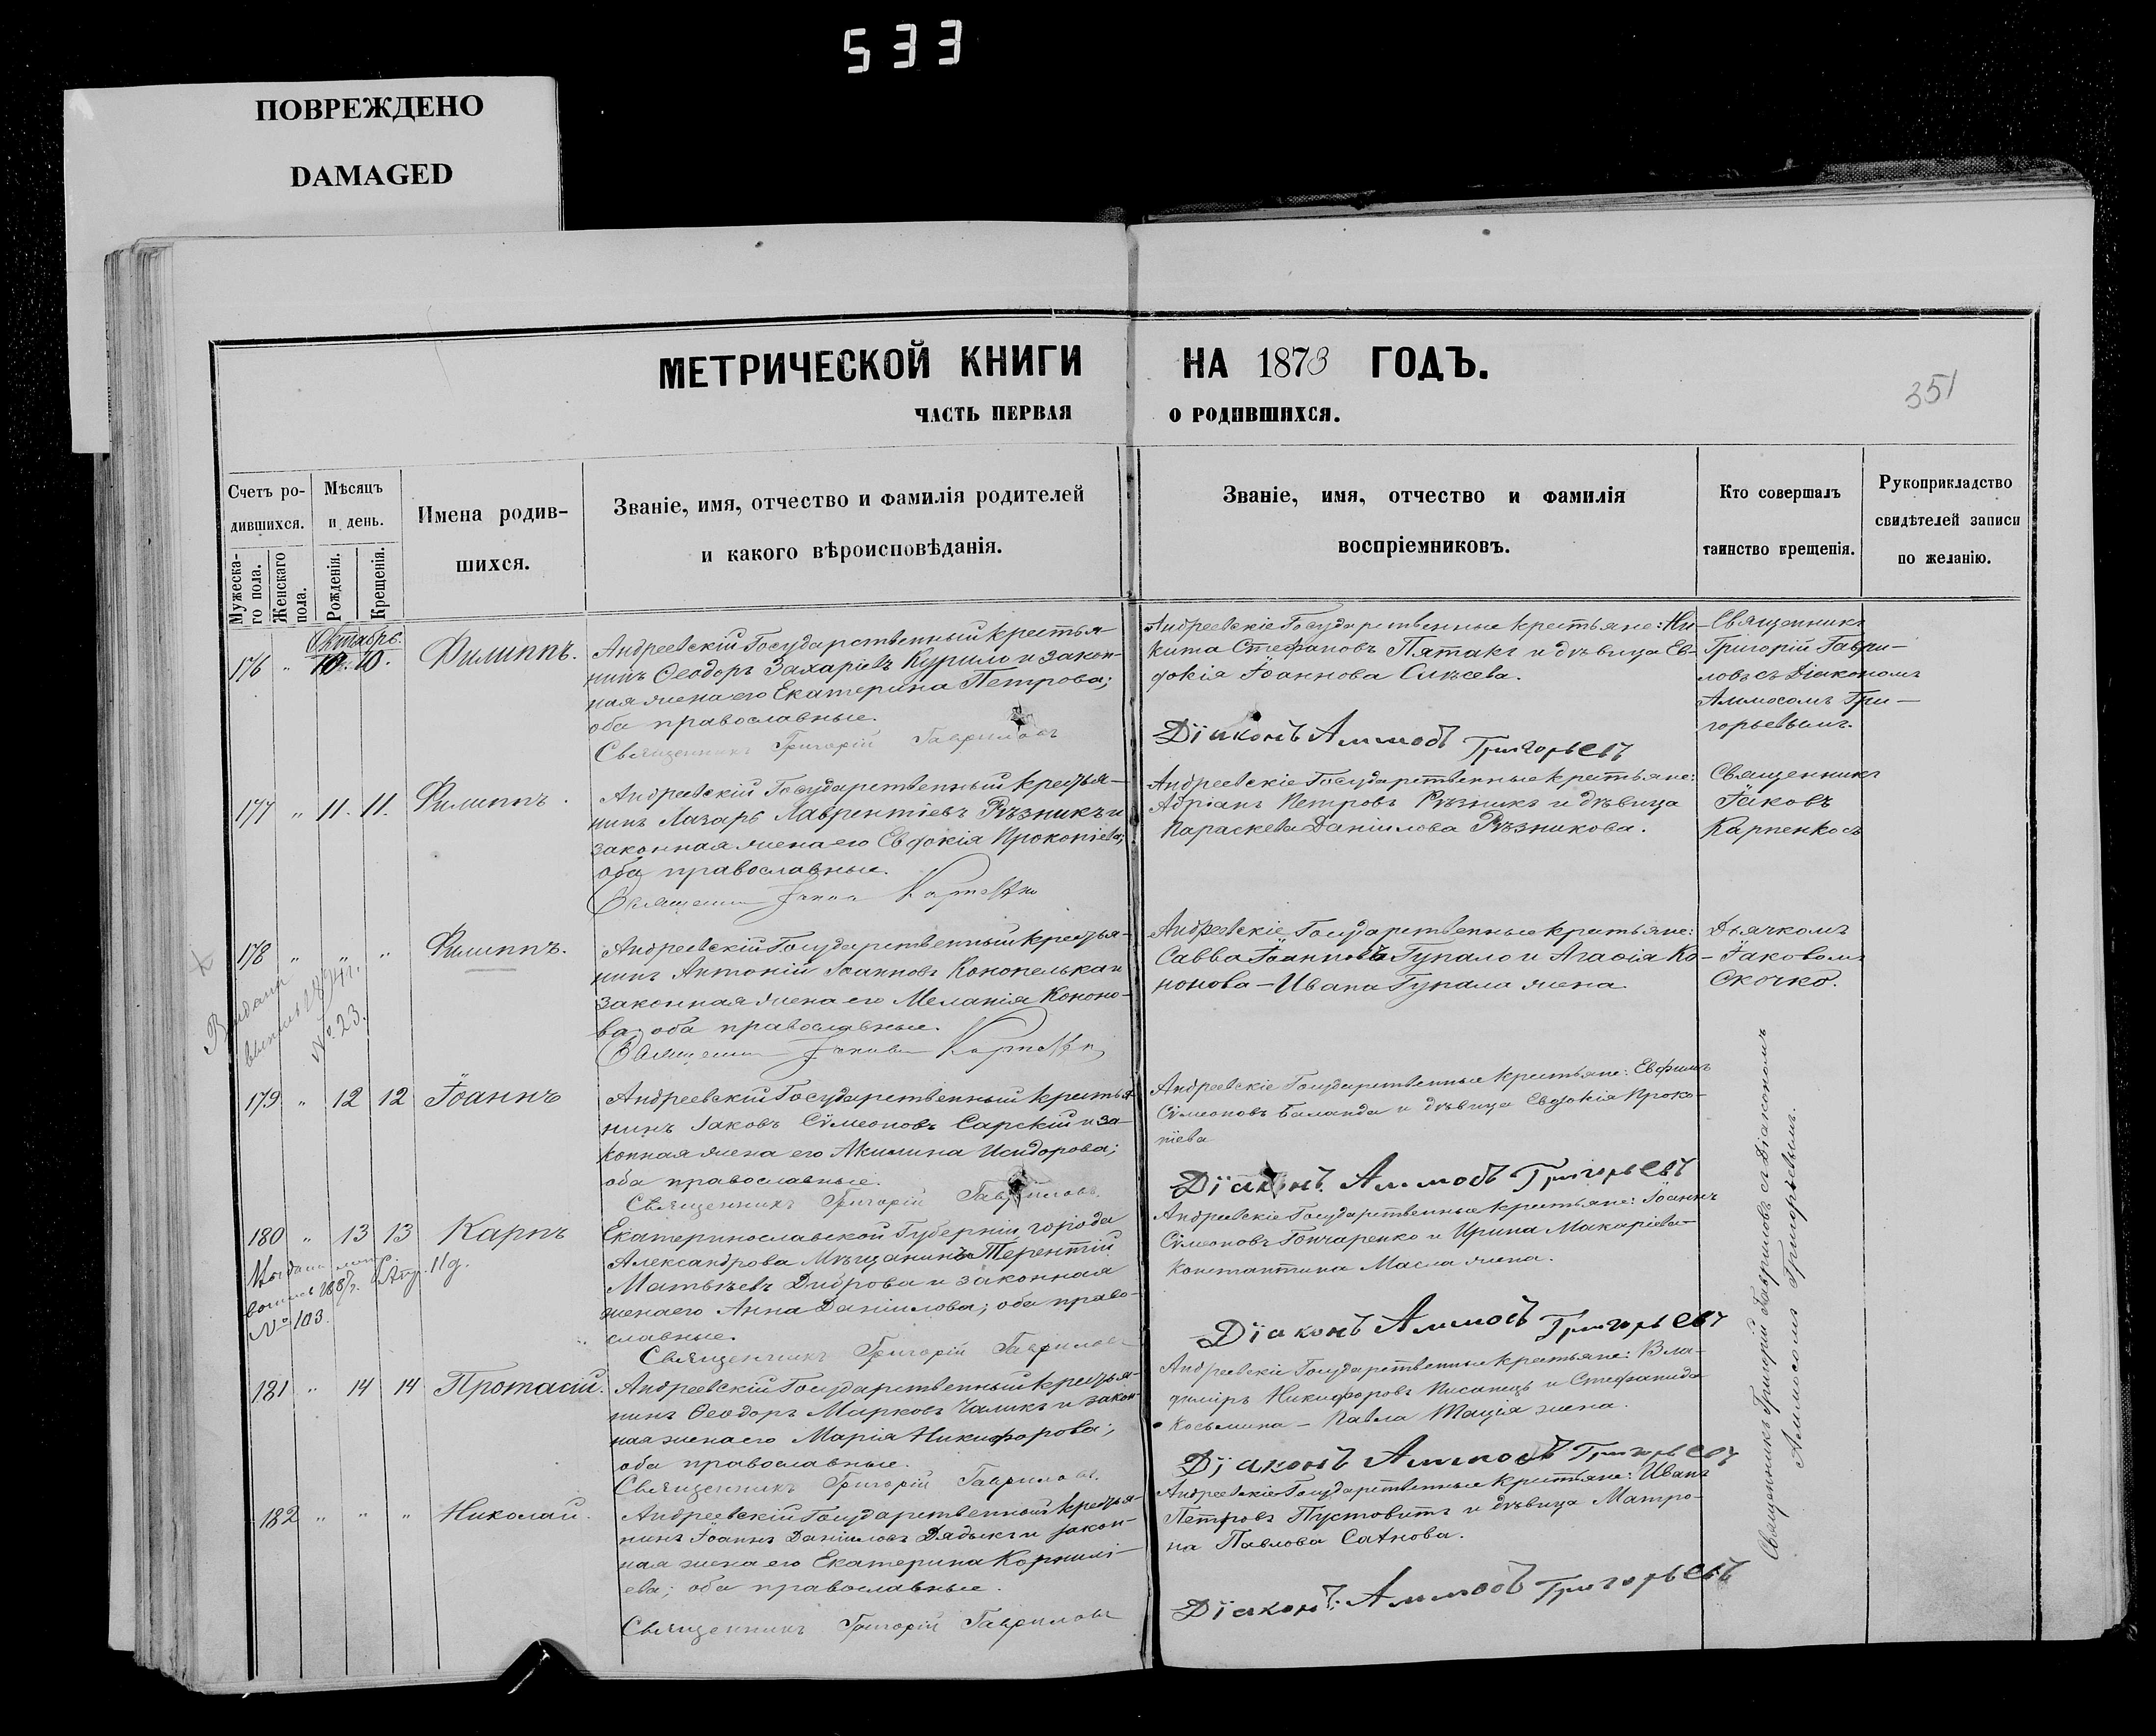 533
ПОВРЕЖДЕНО
DAMAGED
МЕТРИЧЕСКОЙ КНИГИ НА 1873 ГОДЪ.
ЧАСТЬ ПЕРВАЯ О РОДИВШИХСЯ.
351
Счетъ ро-
дившихся.
Мужеска-
го пола.
Женскаго
пола.
Мѣсяцъ
и день.
Рожденія.
Крещенія.
Имена родив-
шихся.
Званіе, имя, отчество и фамилія родителей
и какого вѣроисповѣданія.
Званіе, имя, отчество и фамилія
воспріемниковъ.
Кто совершалъ
таинство крещенія.
Рукоприкладство
свидѣтелей записи
по желанію.
Октябрь.
176 " 10. 10. Филиппъ.
Андреевскій Государственный крестья-
нинъ Ѳеодоръ Захаріевъ Курило и закон-
ная жена его Екатерина Петрова;
оба православные.
Священникъ Григорій Гавриловъ
Андреевскіе Государственные крестьяне: Ни-
кита Стефановъ Пятакъ и дѣвица Ев-
фокія Іоаннова
Діаконъ Аммосъ Григорьевъ
Священникъ
Григорій Гаври-
ловъ съ Діакономъ
Аммосомъ Гри-
горьевымъ.
177 " 11. 11. Филиппъ.
Андреевскій Государственный крестья-
нинъ Лазарь Лаврентіевъ Рѣзникъ и
законная жена его Евфокія Прокопіева;
оба православные.
Священникъ Іаковъ Карпенко
Андреевскіе Государственные крестьяне:
Адріанъ Петровъ Рѣзникъ и дѣвица
Параскева Даніилова Рѣзникова.
Священникъ
Іаковъ
Карпенко съ
178 " " " Филиппъ.
Выдана
выпись
№ 23.
Андреевскій Государственный крестья-
нинъ Антоній Іоанновъ Конопелька и
законная жена его Меланія Кононо-
ва; оба православные.
Священникъ Іаковъ Карпенко
Андреевскіе Государственные крестьяне:
Савва Іоанновъ Гупало и Агафія Ко-
нонова - Ивана Гупала жена
Дьячкомъ
Іаковомъ
Скочко.
179 " 12 12 Іоаннъ
Андреевскій Государственный крестья-
нинъ Іаковъ Сѵмеоновъ Сарскій и за-
конная жена его Акилина Исидорова;
оба православные.
Священникъ Григорій Гавриловъ.
Андреевскіе Государственные крестьяне: Евфимъ
Сѵмеоновъ Баланда и дѣвица Евдокія Проко-
піева
Діаконъ Аммосъ Григорьевъ
180 " 13 13 Карпъ
Выдана метр.
выпись
№ 103.
Екатеринославской Губерніи, города
Александрова Мѣщанинъ Терентій
Матвѣевъ Диброва и законная
жена его Анна Даніилова; оба право-
славные.
Священникъ Григорій Гавриловъ
Андреевскіе Государственные крестьяне: Іоаннъ
Сѵмеоновъ Гончаренко и Ирина Макаріева
Константина Масла жена.
Діаконъ Аммосъ Григорьевъ
181 " 14 14 Протасій.
Андреевскій Государственный крестья-
нинъ Ѳеодоръ Марковъ Чаликъ и закон-
ная жена его Марія Никифорова;
оба православные.
Священникъ Григорій Гавриловъ.
Андреевскіе Государственные крестьяне: Вла-
диміръ Никифоровъ Писанецъ и Стефанида
Косьмина - Павла Мація жена.
Діаконъ Аммосъ Григорьевъ
182 " " " Николай.
Андреевскій Государственный крестья-
нинъ Іоаннъ Даніиловъ Дядыкъ и закон-
ная жена его Екатерина Корнилі-
ева; оба православные.
Священникъ Григорій Гавриловъ
Андреевскіе Государственные крестьяне: Иванъ
Петровъ Пустовитъ и дѣвица Матро-
на Павлова Сахнова.
Діаконъ Аммосъ Григорьевъ
Священникъ Григорій Гавриловъ съ Діакономъ
Аммосомъ Григорьевымъ.